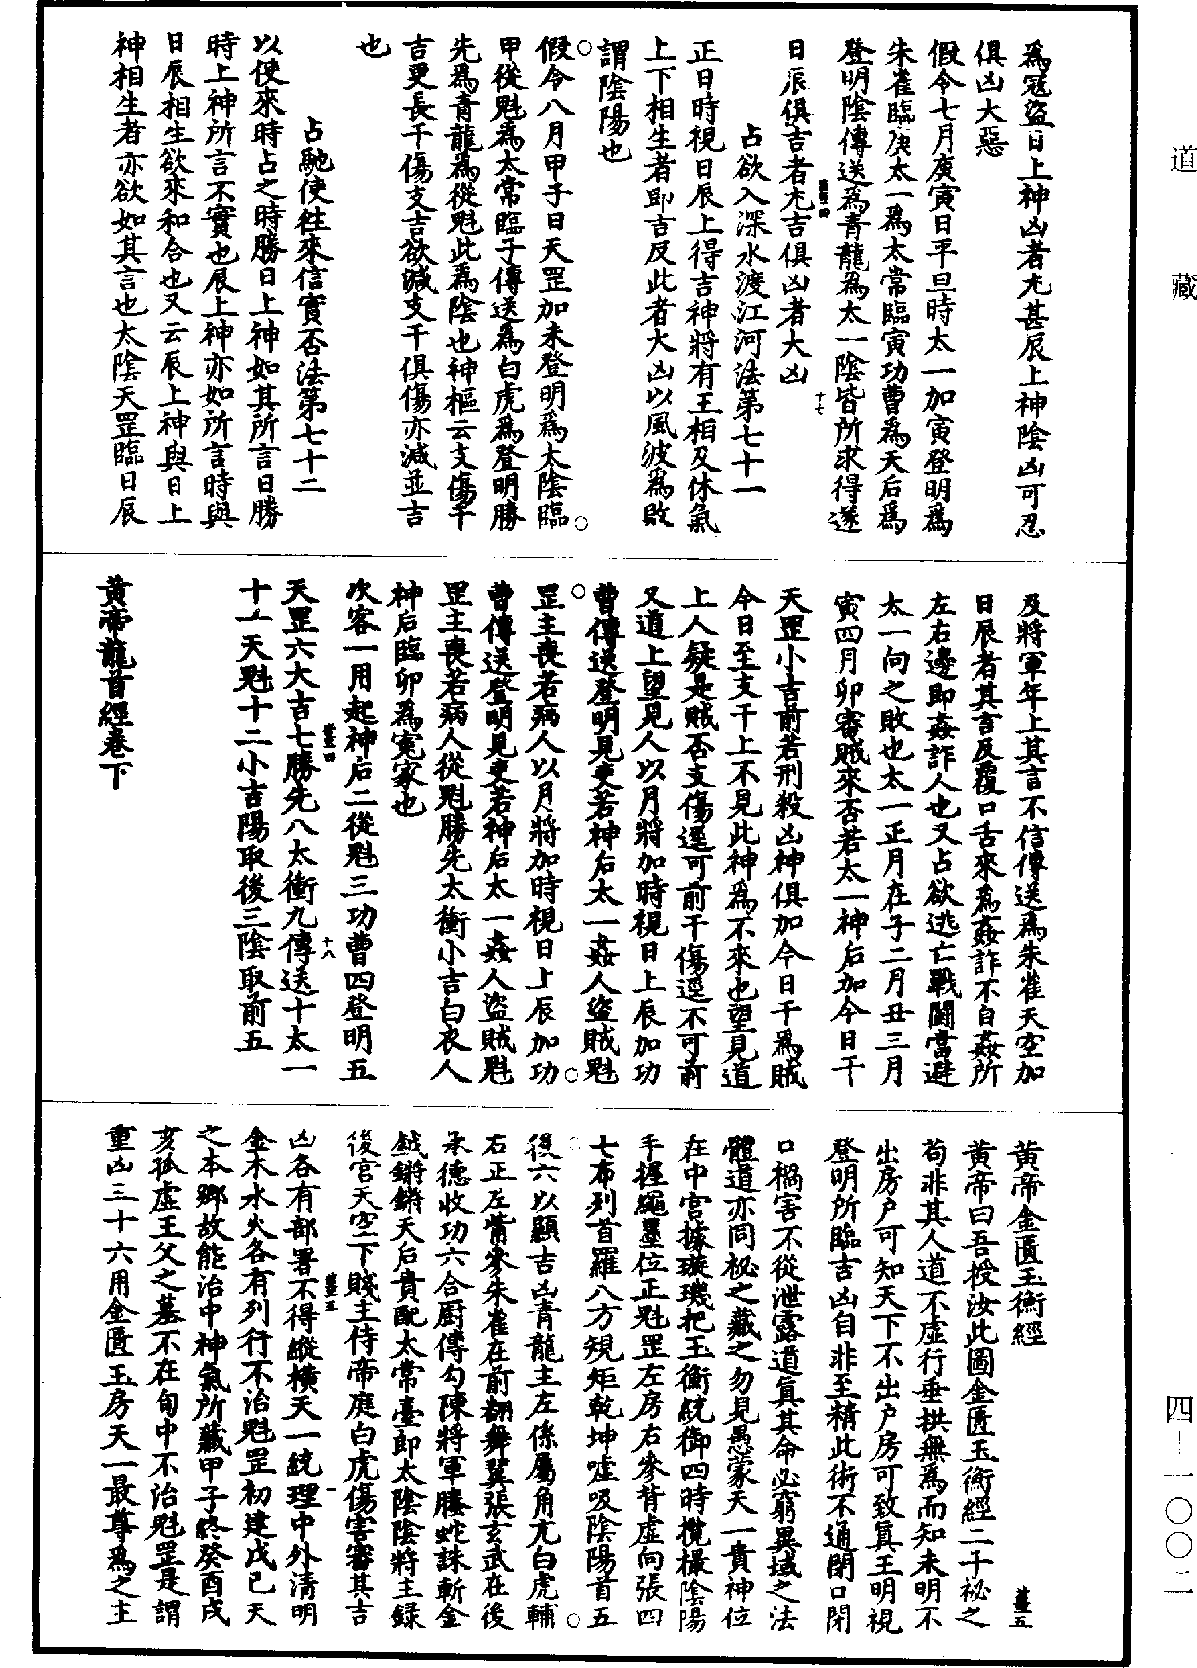 道藏
四—一〇〇二
爲寇盜日上神凶者尤甚辰上神陰凶可忍
俱凶大惡
假令七月庚寅日平旦時太一加寅登明爲
朱雀臨庚太一爲太常臨寅功曹爲天后爲
登明陰傳送爲青龍爲太一陰皆所求得遂
日辰俱吉者尤吉俱凶者大凶
十七
占欲入深水渡江河法第七十一
正日時視日辰上得吉神將有王相及休氣
上下相生者即吉反此者大凶以風波爲敗
謂陰陽也
假令八月甲子日天罡加未登明爲太陰臨
甲從魁爲太常臨子傳送爲白虎爲登明勝
先爲青龍爲從魁此爲陰也神樞云支傷干
吉更長干傷支吉欲減支干俱傷亦減並吉
也
占馳使往來信實否法第七十二
以使來時占之時勝日上神如其所言日勝
時上神所言不實也辰上神亦如所言時與
日辰相生欲來和合也又云辰上神與日上
神相生者亦欲如其言也太陰天罡臨日辰
及將軍年上其言不信傳送爲朱雀天空加
日辰者其言反覆口舌來爲姦詐不自姦所
左右邊即姦詐人也又占欲逃亡戰鬬當避
太一向之敗也太一正月在子二月丑三月
寅四月卯審賊來否若太一神后加今日干
天罡小吉前若刑殺凶神俱加今日干爲賊
今日至支干上不見此神爲不來也望見道
上人疑是賊否支傷還可前干傷還不可前
又道上望見人以月將加時視日上辰加功
曹傳送登明見吏若神后太一姦人盜賊魁
罡主喪若病人以月將加時視日上辰加功
曹傳送登明見吏若神后太一姦人盜賊魁
罡主喪若病人從魁勝先太衝小吉白衣人
神后臨卯爲寃家也
次客一用起神后二從魁三功曹四登明五
天罡六大吉七勝先八太衝九傳送十太一
十八
十一天魁十二小吉陽取後三陰取前五
黃帝龍首經卷下
黃帝金匱玉衡經
薑五
黃帝曰吾授汝此圖金匱玉衡經二千祕之
苟非其人道不虛行垂拱無爲而知未明不
出房户可知天下不出户房可致眞王明視
登明所臨吉凶自非至精此術不通閉口閉
口禍害不從泄露道眞其命必窮異域之法
體道亦同祕之藏之勿見愚蒙天一貴神位
在中宮據璇璣把玉衡統御四時攬撮陰陽
手握繩墨位正魁罡左房右參背虛向張四
七布列首羅八方規矩乾坤噓吸陰陽首五
後六以顯吉凶青龍主左係屬角亢白虎輔
右正左觜參朱雀在前翻舞翼張玄武在後
承德收功六合厨傳勾陳將軍螣蛇誅斬金
鉞鏘鏘天后貴配太常臺郎太陰陰將主録
後宮天空下賤主侍帝庭白虎傷害審其吉
凶各有部署不得縱橫天一統理中外清明
金木水火各有列行不治魁罡初建戊己天
之本鄉故能治中神氣所藏甲子終癸酉戌
亥孤虛王父之墓不在旬中不治魁罡是謂
重凶三十六用金匱玉房天一最尊爲之主